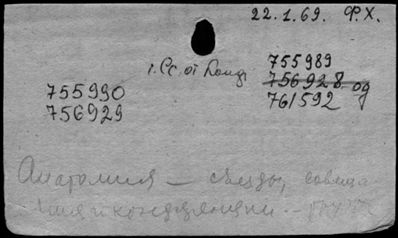 22.1.69. Ф.Х.
755989
756928 од
761592
755990
756929
Анатомия — съезды, совеща
ния и конференции --